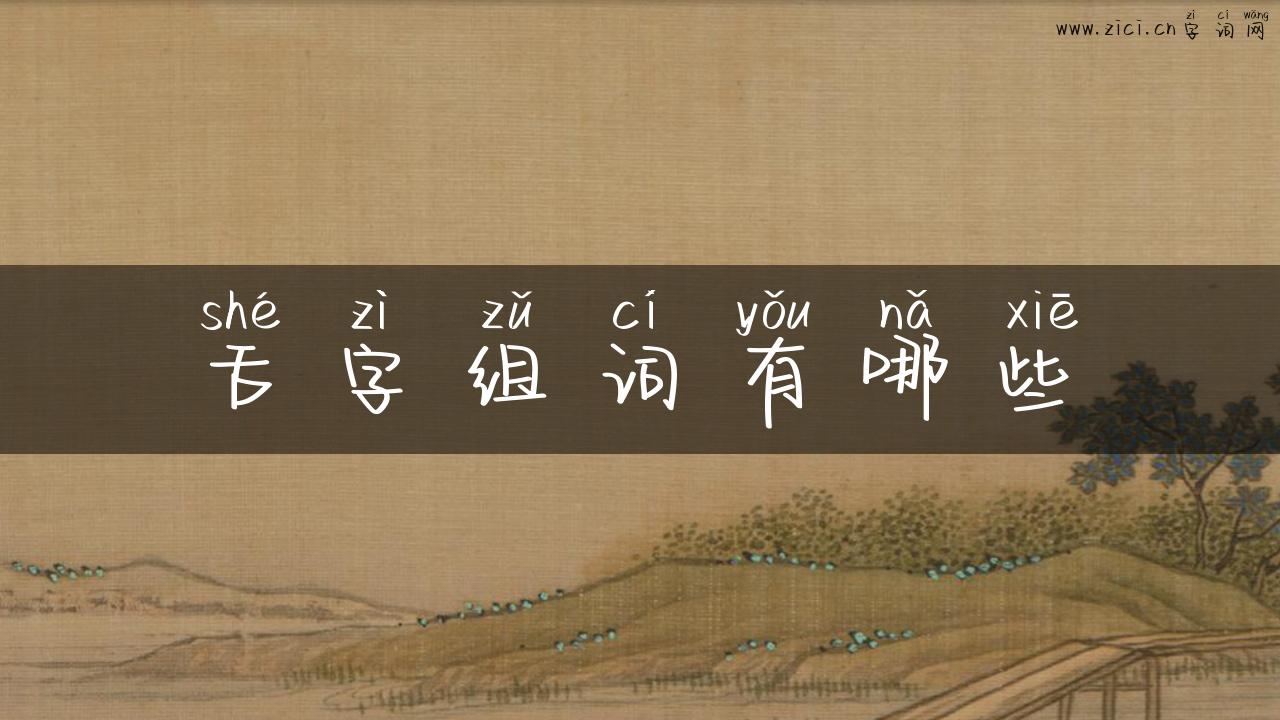 zì cí wǎng
www.zici.cn字词网
shé zì zǔ cí yǒu nǎ xiē
舌字组词有哪些